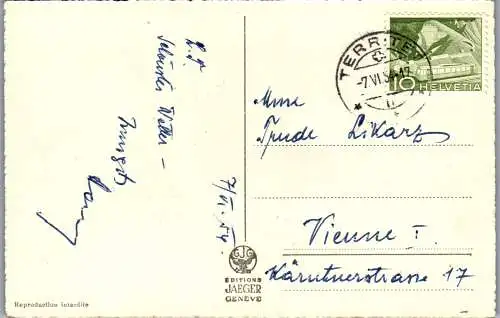 L. J.
Schönstes Wetter –
Innigst
7/VI. 54.
Mme
Trude Likarz
Vienne I.
Kärntnerstrasse 17
TERRITET
-7.VI.54-17
10 HELVETIA
EDITIONS
JAEGER
GENÈVE
Reproduction interdite